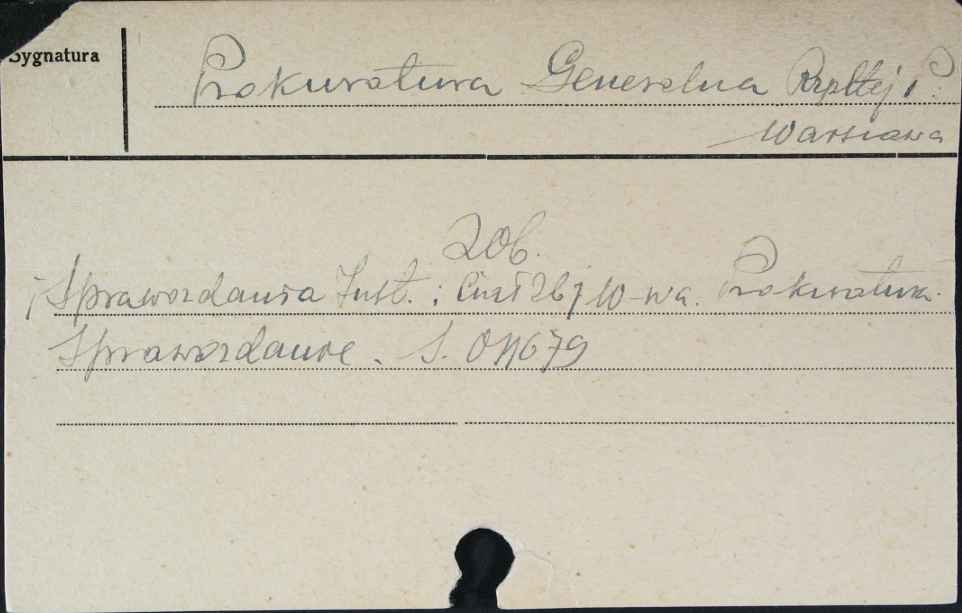 Sygnatura
Prokuratura Generalna Rzpltej P.
Warszawa
Zob.
Sprawozdania Inst. i W-wa. Prokuratura.
Sprawozdanie. S. 011679